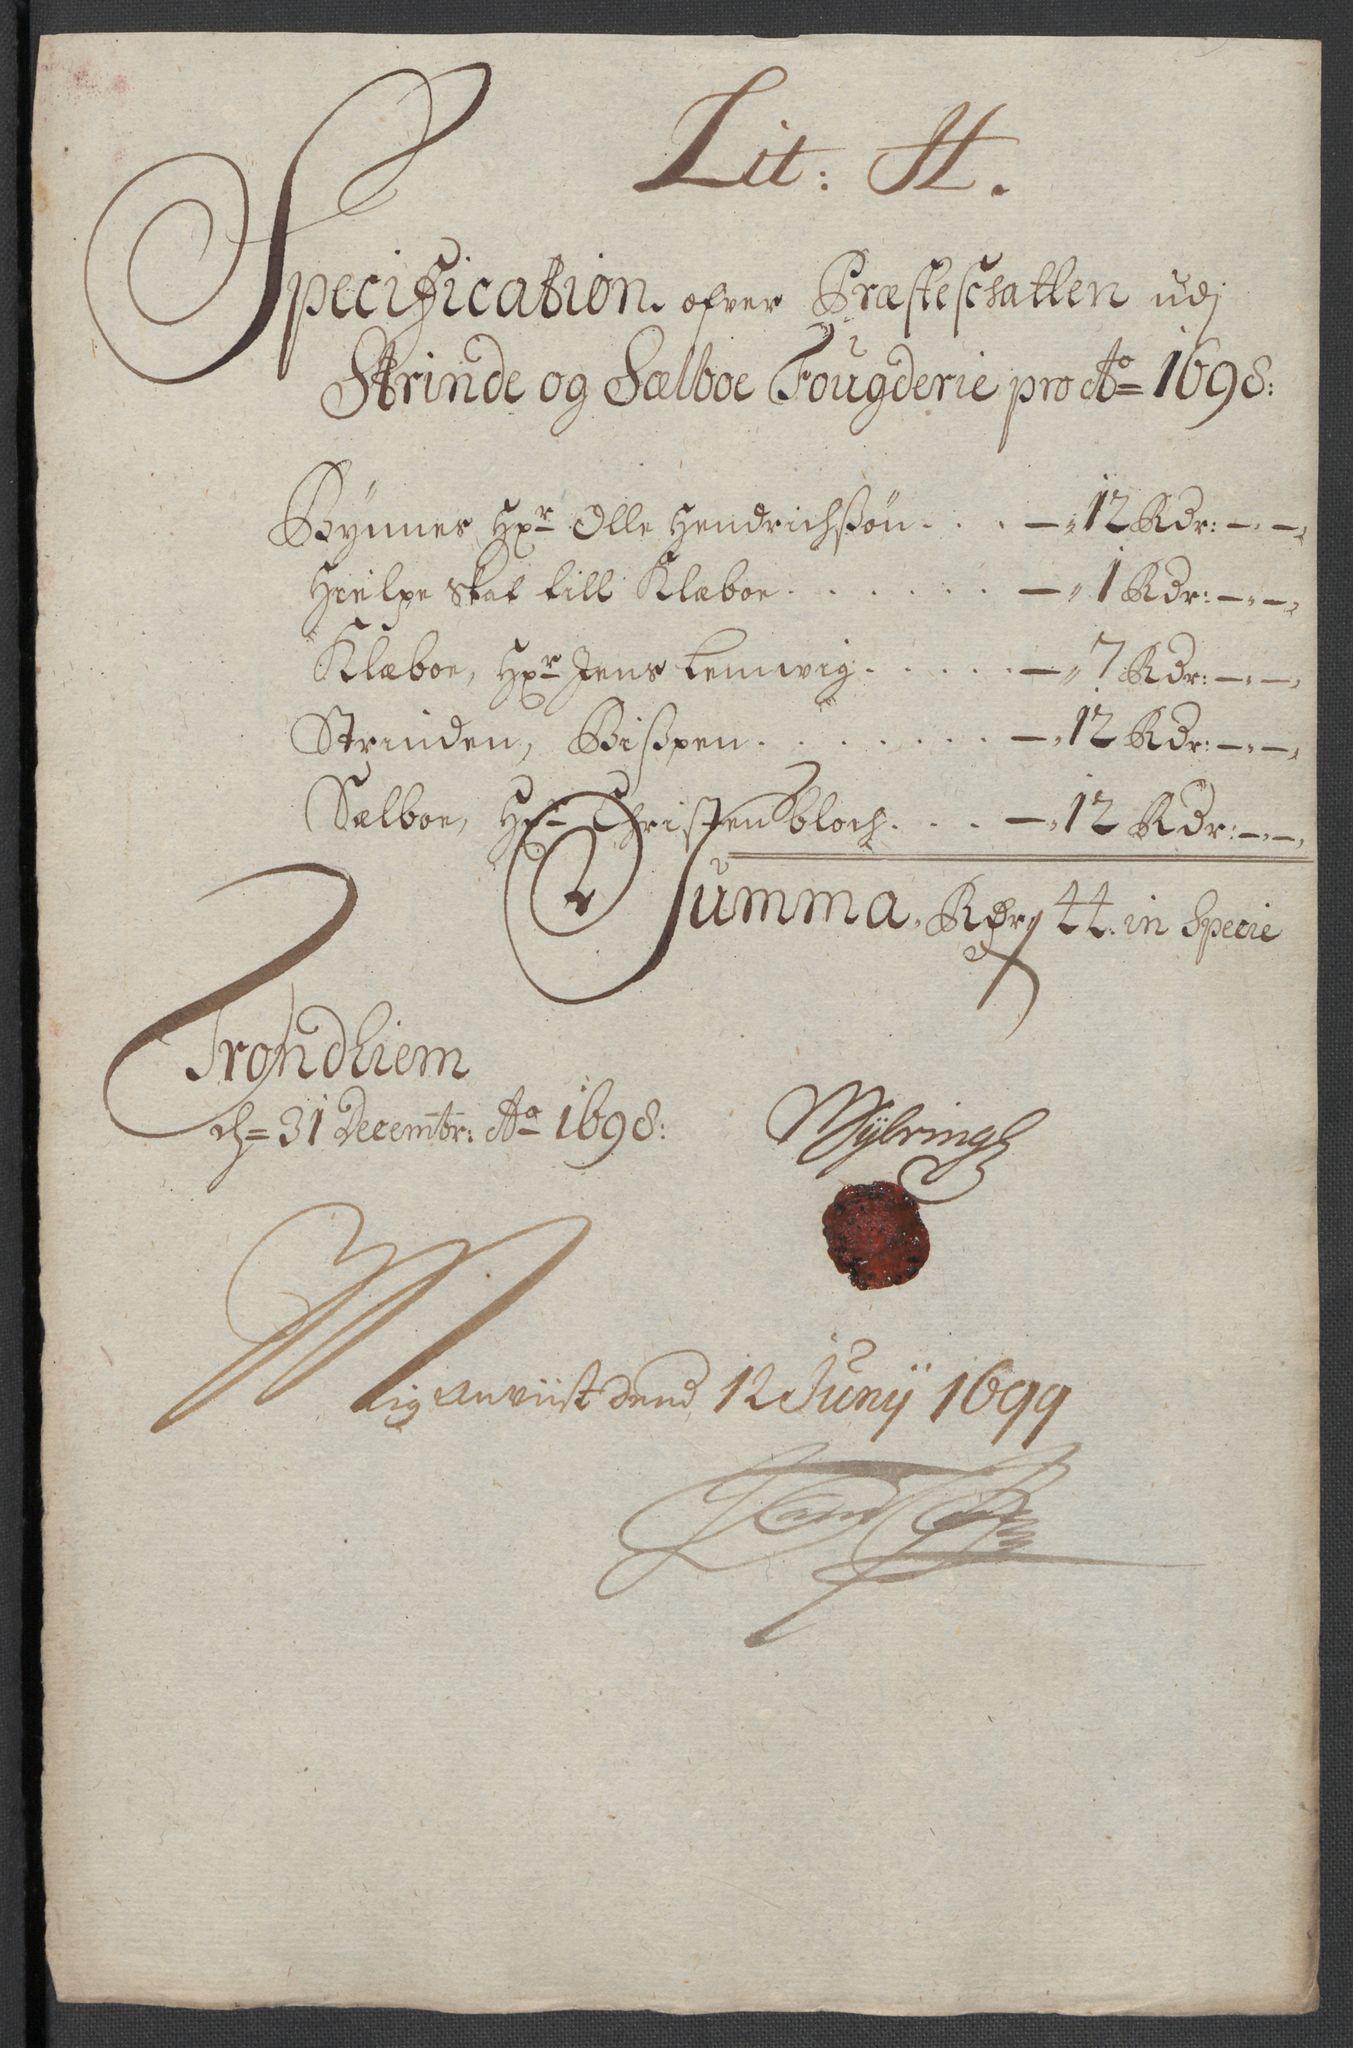 Lit: H.
Specification ofver Præsteschatten udj
Strinde og Sælboe Fougderie pro Ao 1698:
Bynnes Hr Olle Hendrichßøn . . . — „ 12 Rdr: — „ — „
Hielpe skat till Klæboe . . . . . . — „ 1 Rdr: — „ — „
Klæboe, Hr Jens Lemwig . . . . . — „ 7 Rdr: — „ — „
Strinden, Bißpen . . . . . . . — „ 12 Rdr: — „ — „
Sælboe, Hr Christen bloch . . . — „ 12 Rdr: — „ — „
Summa, Rdr 44. in Specie
Trondhiem
d= 31 Decembr: Ao 1698:
Mig anviist dend 12 Junij 1699